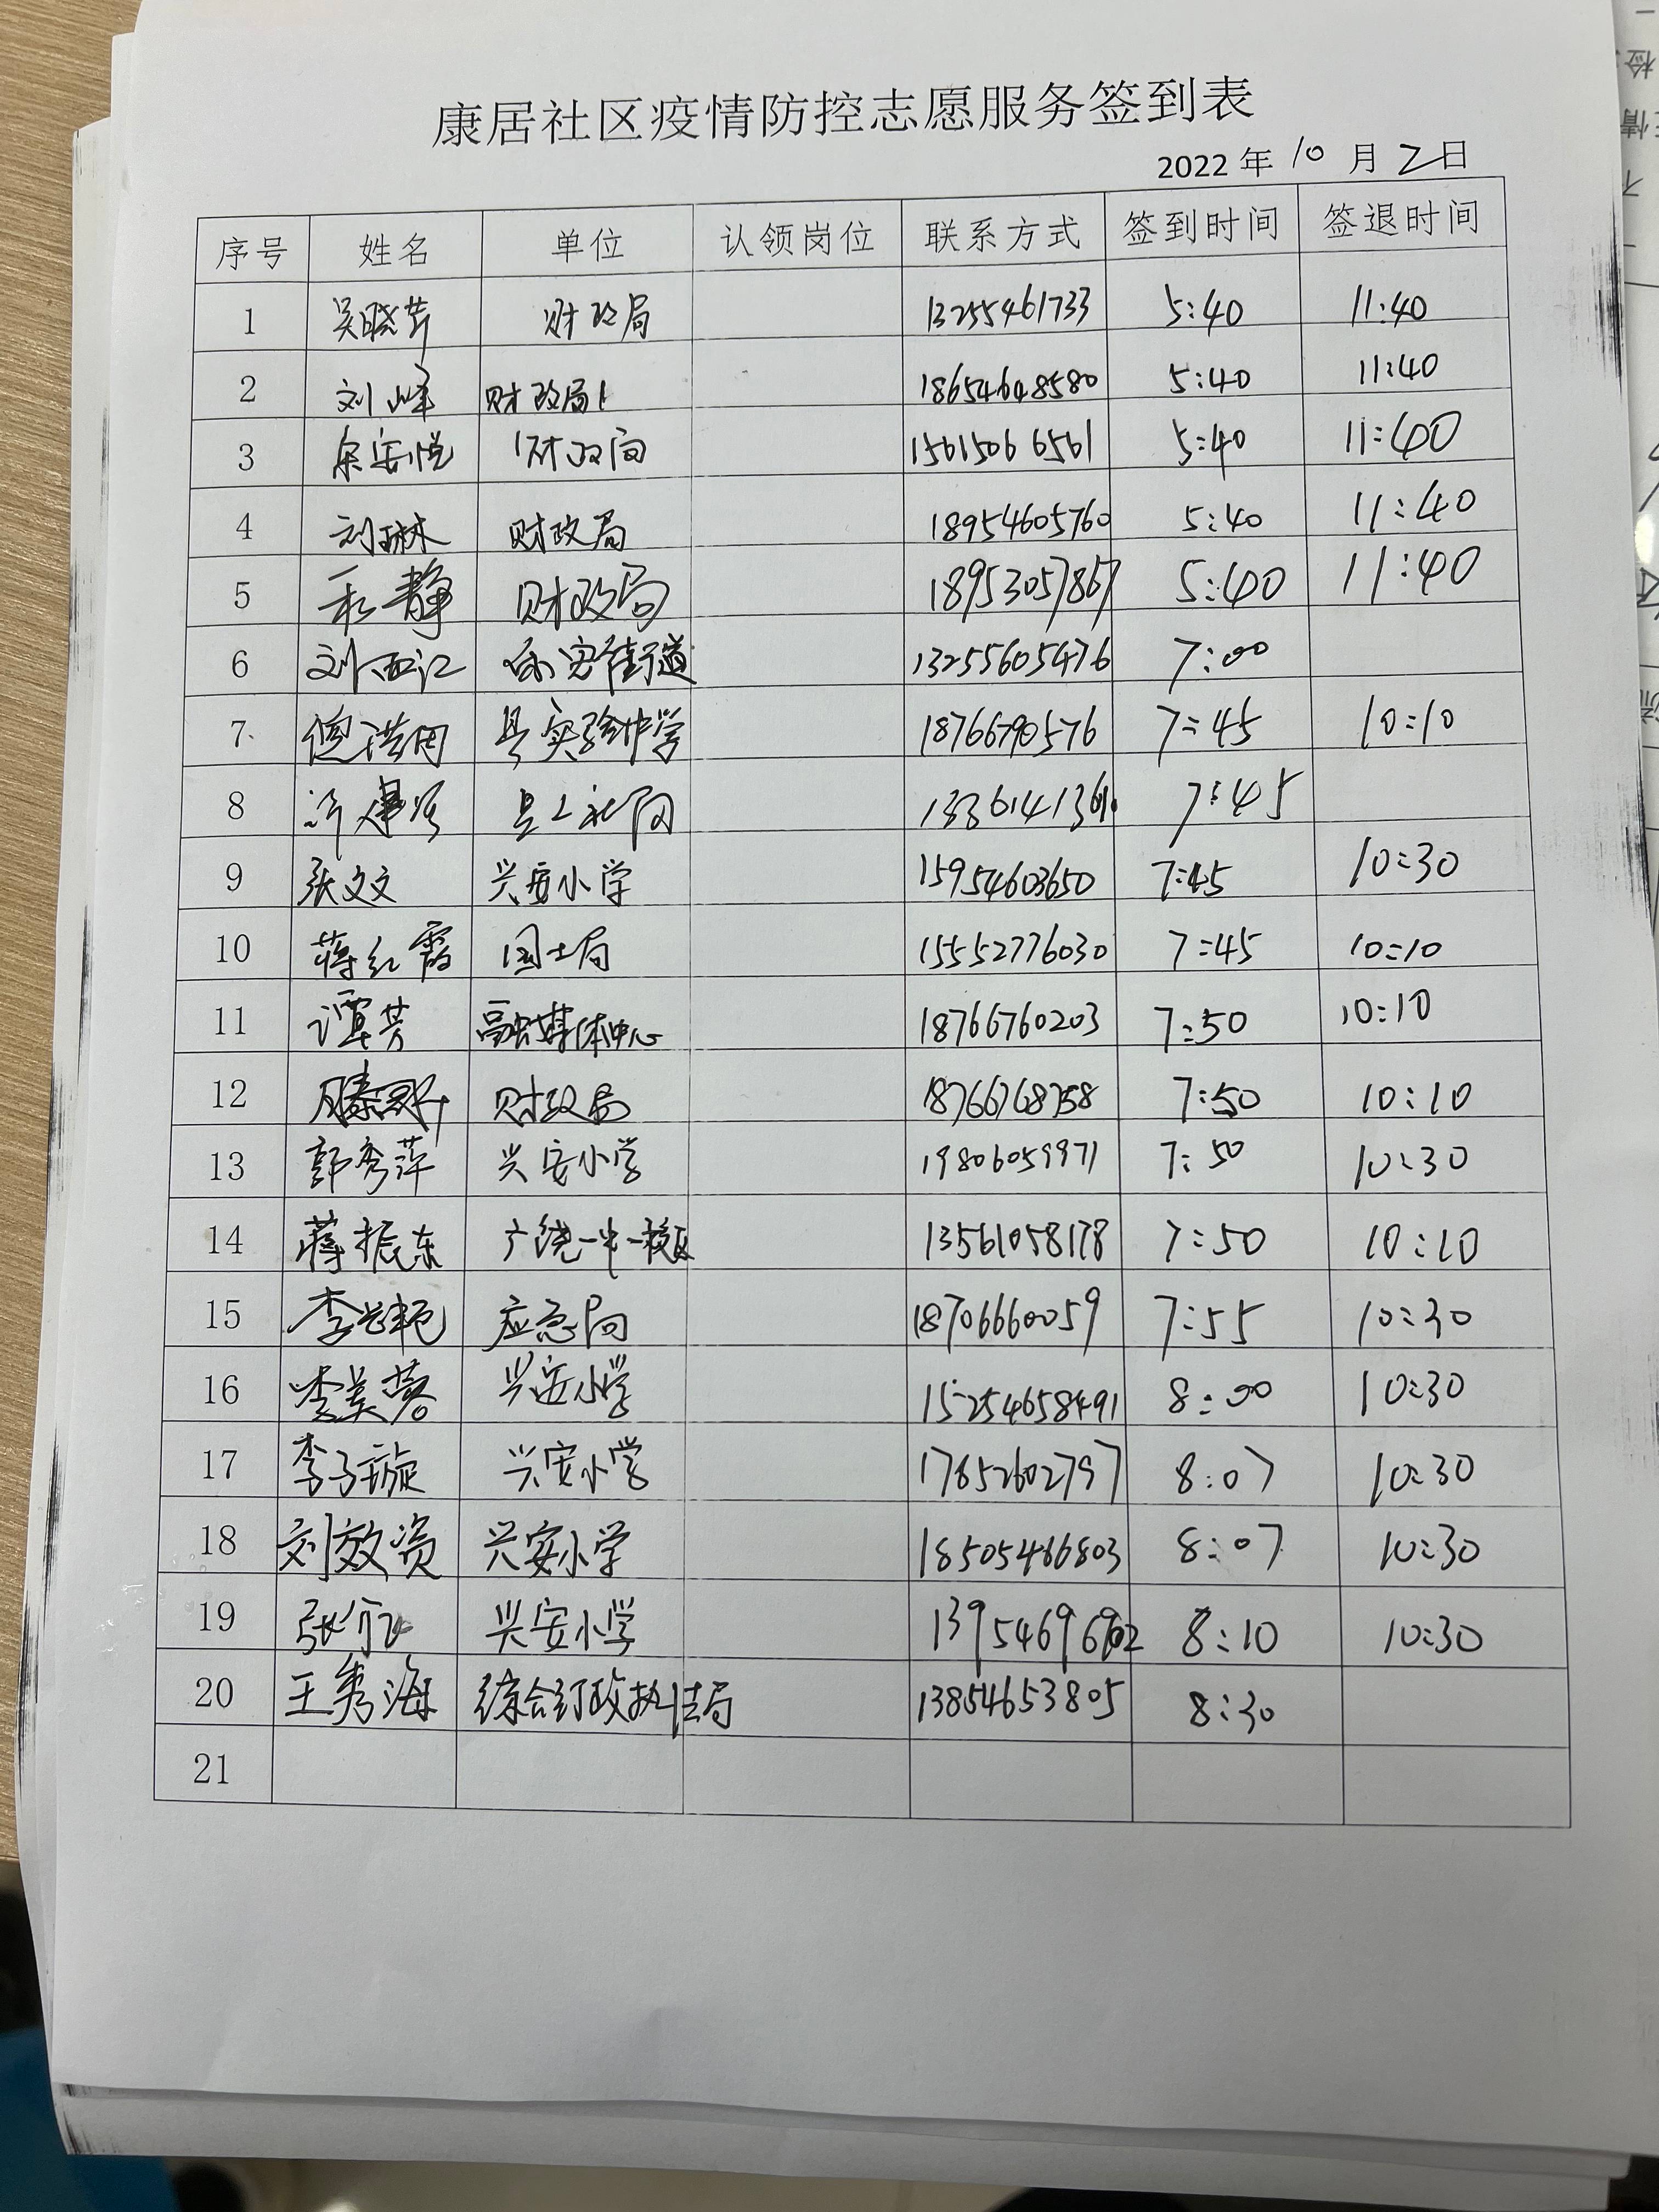 康居社区疫情防控志愿服务签到表
2022年10月2日
序号 姓名 单位 认领岗位 联系方式 签到时间 签退时间
1 吴晓芹 财政局 13255461733 5:40 11:40
2 刘峰 财政局 18654648580 5:40 11:40
3 财政局 15615066561 5:40 11:40
4 刘琳 财政局 18954605760 5:40 11:40
5 静 财政局 18953057867 5:40 11:40
6 刘西江 街道 13255605476 7:00
7 县实验中学 18766790576 7:45 10:10
8 7:45
9 张文文 兴安小学 15954603650 7:45 10:30
10 蒋红霞 国土局 15552776030 7:45 10:10
11 谭芳 融媒体中心 18766760203 7:50 10:10
12 滕 财政局 18766768758 7:50 10:10
13 郭秀萍 兴安小学 19806059971 7:50 10:30
14 蒋振东 广饶一中一校区 13561058178 7:50 10:10
15 李 应急局 18706660059 7:55 10:30
16 李美蓉 兴安小学 15254658491 8:00 10:30
17 李子璇 兴安小学 17652602797 8:07 10:30
18 刘效资 兴安小学 18505466803 8:07 10:30
19 张 兴安小学 8:10 10:30
20 王秀海 综合行政执法局 13854653805 8:30
21